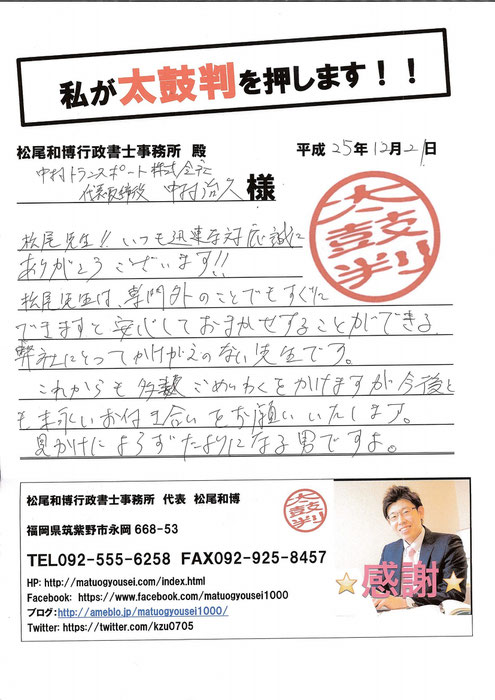 私が太鼓判を押します！！
松尾和博行政書士事務所 殿
平成 25年12月21日
中村トランスポート株式会社
代表取締役 中村治久 様
太鼓判
松尾先生!! いつも迅速な対応誠に
ありがとうございます!!
松尾先生は、専門外のことでもすぐに
できますと安心しておまかせすることができる、
弊社にとってかけがえのない先生です。
これからも多数ごめいわくをかけますが今後と
も末永いお付き合いをお願いいたします。
見かけによらずたよりになる男ですよ。
松尾和博行政書士事務所 代表 松尾和博
太鼓判
福岡県筑紫野市永岡 668-53
TEL092-555-6258 FAX092-925-8457
HP: http://matuogyousei.com/index.html
Facebook: https://www.facebook.com/matuogyousei1000
ブログ:http://ameblo.jp/matuogyousei1000/
Twitter: https://twitter.com/kzu0705
感謝